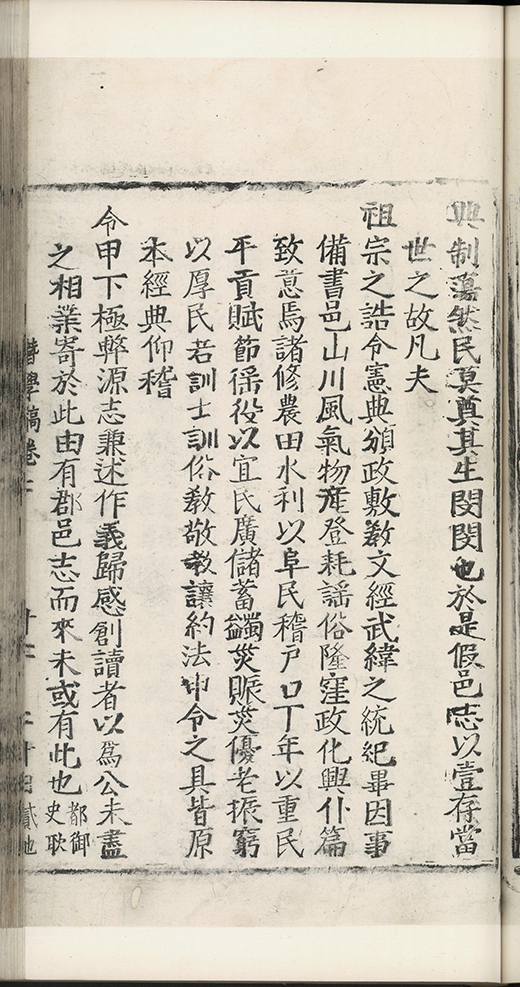 典制蕩然民莫奠其生閔閔也於是假邑志以壹存當
世之故凡夫
祖宗之誥令憲典頒政敷教文經武緯之統紀畢因事
備書邑山川風氣物產登耗謡俗隆窪政化興仆篇
致意焉諸修農田水利以阜民稽戶口丁年以重民
平貢賦節徭役以宜民廣儲蓄蠲災賑災優老振窮
以厚民若訓士訓俗敎敬敎讓約法申令之具皆原
本經典仰稽
令甲下極弊源志兼述作義歸感創讀者以爲公未盡
之相業寄於此由有郡邑志而來未或有此也都御
史耿
學稿卷